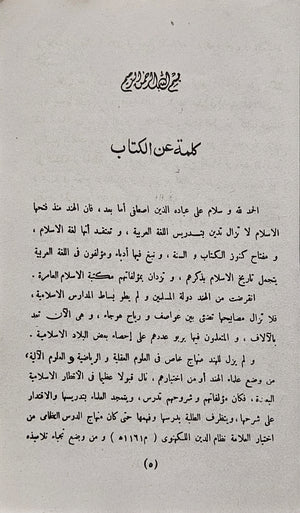 بسم الله الرحمن الرحيم
كلمة عن الكتاب
الحمد لله و سلام على عباده الذين اصطفى أما بعد ، فان الهند منذ فتحها
الاسلام لا تزال تدين بتدريس اللغة العربية ، و تعتقد أنها لغة الاسلام ،
و مفتاح كنوز الكتاب و السنة ، و نبغ فيها أدباء و مؤلفون فى اللغة العربية
يتجمل تاريخ الاسلام بذكرهم ، و تزدان بمؤلفاتهم مكتبة الاسلام العامرة .
انقرضت من الهند دولة المسلمين و لم يطو بساط المدارس الاسلامية ،
فلا تزال مصابيحها تضئ بين عواصف و رياح هوجاء ، و هى الآن تعد
بالآلاف ، و المتعلمون فيها يربو عددهم على إحصاء بعض البلاد الاسلامية .
و لم يزل للهند منهاج خاص فى العلوم العقلية و الرياضية و العلوم الآلية ،
من وضع علماء الهند أو من اختيارهم ، نال قبولا عظيما فى الأقطار الاسلامية
البعيدة ، فكان مؤلفاتهم و شروحهم تدرس ، و يتمجد العلماء بتدريسها و الاقتدار
على شرحها ، و يتظرف الطلبة بدرسها و فهمها حتى كان منهاج الدرس النظامى من
اختيار العلامة نظام الدين اللكهنوى ( م ١١٦١ ه‍ ) و من وضع نجباء تلاميذه
(٥)